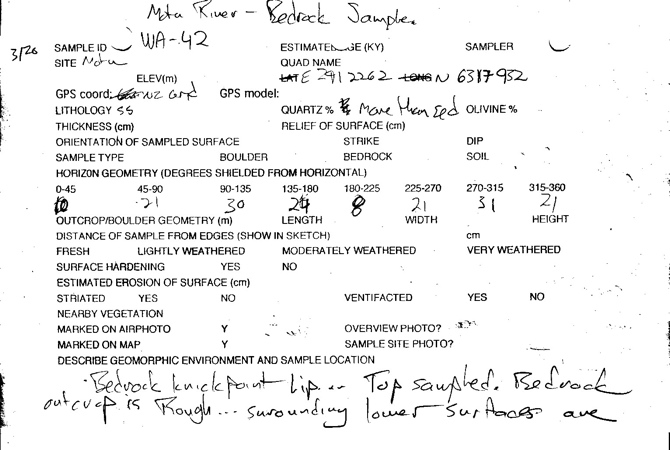 Motu River - Bedrock Sample.
3/26 SAMPLE ID WA-42 ESTIMATED AGE (KY) SAMPLER
SITE Motu QUAD NAME
ELEV(m) LAT E 2912262 LONG N 6317932
GPS coord: NZ Grd GPS model:
LITHOLOGY SS QUARTZ % More than Sed OLIVINE %
THICKNESS (cm) RELIEF OF SURFACE (cm)
ORIENTATION OF SAMPLED SURFACE STRIKE DIP
SAMPLE TYPE BOULDER BEDROCK SOIL
HORIZON GEOMETRY (DEGREES SHIELDED FROM HORIZONTAL)
0-45 45-90 90-135 135-180 180-225 225-270 270-315 315-360
10 21 30 24 8 21 31 21
OUTCROP/BOULDER GEOMETRY (m) LENGTH WIDTH HEIGHT
DISTANCE OF SAMPLE FROM EDGES (SHOW IN SKETCH) cm
FRESH LIGHTLY WEATHERED MODERATELY WEATHERED VERY WEATHERED
SURFACE HARDENING YES NO
ESTIMATED EROSION OF SURFACE (cm)
STRIATED YES NO VENTIFACTED YES NO
NEARBY VEGETATION
MARKED ON AIRPHOTO Y OVERVIEW PHOTO?
MARKED ON MAP Y SAMPLE SITE PHOTO?
DESCRIBE GEOMORPHIC ENVIRONMENT AND SAMPLE LOCATION
Bedrock knickpoint lip... Top sampled. Bedrock
outcrop is Rough... surounding lower surfaces are